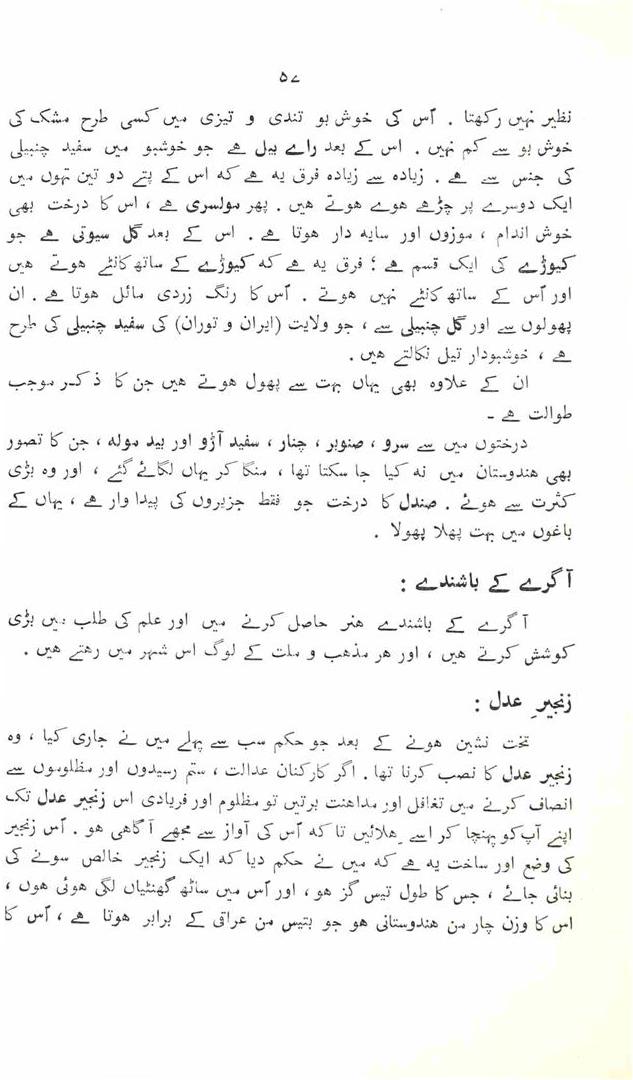 ۵۷
نظیر نہیں رکھتا ۔ اُس کی خوش بو تندی و تیزی میں کسی طرح مشک کی
خوش بو سے کم نہیں ۔ اس کے بعد راے بیل ہے جو خوشبو میں سفید چنبیلی
کی جنس سے ہے ۔ زیادہ سے زیادہ فرق یہ ہے کہ اس کے پتے دو تین تہوں میں
ایک دوسرے پر چڑھے ہوے ہوتے ہیں ۔ پھر مولسری ہے ، اس کا درخت بھی
خوش اندام ، موزوں اور سایہ دار ہوتا ہے ۔ اس کے بعد گل سیوتی ہے جو
کیوڑے کی ایک قسم ہے ؛ فرق یہ ہے کہ کیوڑے کے ساتھ کانٹے ہوتے ہیں
اور اُس کے ساتھ کانٹے نہیں ہوتے ۔ اُس کا رنگ زردی مائل ہوتا ہے ۔ ان
پھولوں سے اور گل چنبیلی سے ، جو ولایت (ایران و توران) کی سفید چنبیلی کی طرح
ہے ، خوشبودار تیل نکالتے ہیں ۔
ان کے علاوہ بھی یہاں بہت سے پھول ہوتے ہیں جن کا ذکر موجب
طوالت ہے ۔
درختوں میں سے سرو ، صنوبر ، چنار ، سفید آڑو اور بید مولہ ، جن کا تصور
بھی ہندوستان میں نہ کیا جا سکتا تھا ، منگا کر یہاں لگائے گئے ، اور وہ بڑی
کثرت سے ہوئے ۔ صندل کا درخت جو فقط جزیروں کی پیدا وار ہے ، یہاں کے
باغوں میں بہت پھلا پھولا ۔
آگرے کے باشندے :
آگرے کے باشندے ہنر حاصل کرنے میں اور علم کی طلب میں بڑی
کوشش کرتے ہیں ، اور ہر مذہب و ملت کے لوگ اس شہر میں رہتے ہیں ۔
زنجیرِ عدل :
تخت نشین ہونے کے بعد جو حکم سب سے پہلے میں نے جاری کیا ، وہ
زنجیر عدل کا نصب کرنا تھا ۔ اگر کارکنان عدالت ، ستم رسیدوں اور مظلوموں سے
انصاف کرنے میں تغافل اور مداہنت برتیں تو مظلوم اور فریادی اس زنجیر عدل تک
اپنے آپ کو پہنچا کر اسے ہلائیں تا کہ اُس کی آواز سے مجھے آگاہی ہو ۔ اُس زنجیر
کی وضع اور ساخت یہ ہے کہ میں نے حکم دیا کہ ایک زنجیر خالص سونے کی
بنائی جائے ، جس کا طول تیس گز ہو ، اور اُس میں ساٹھ گھنٹیاں لگی ہوئی ہوں ،
اس کا وزن چار من ہندوستانی ہو جو بتیس من عراقی کے برابر ہوتا ہے ، اُس کا